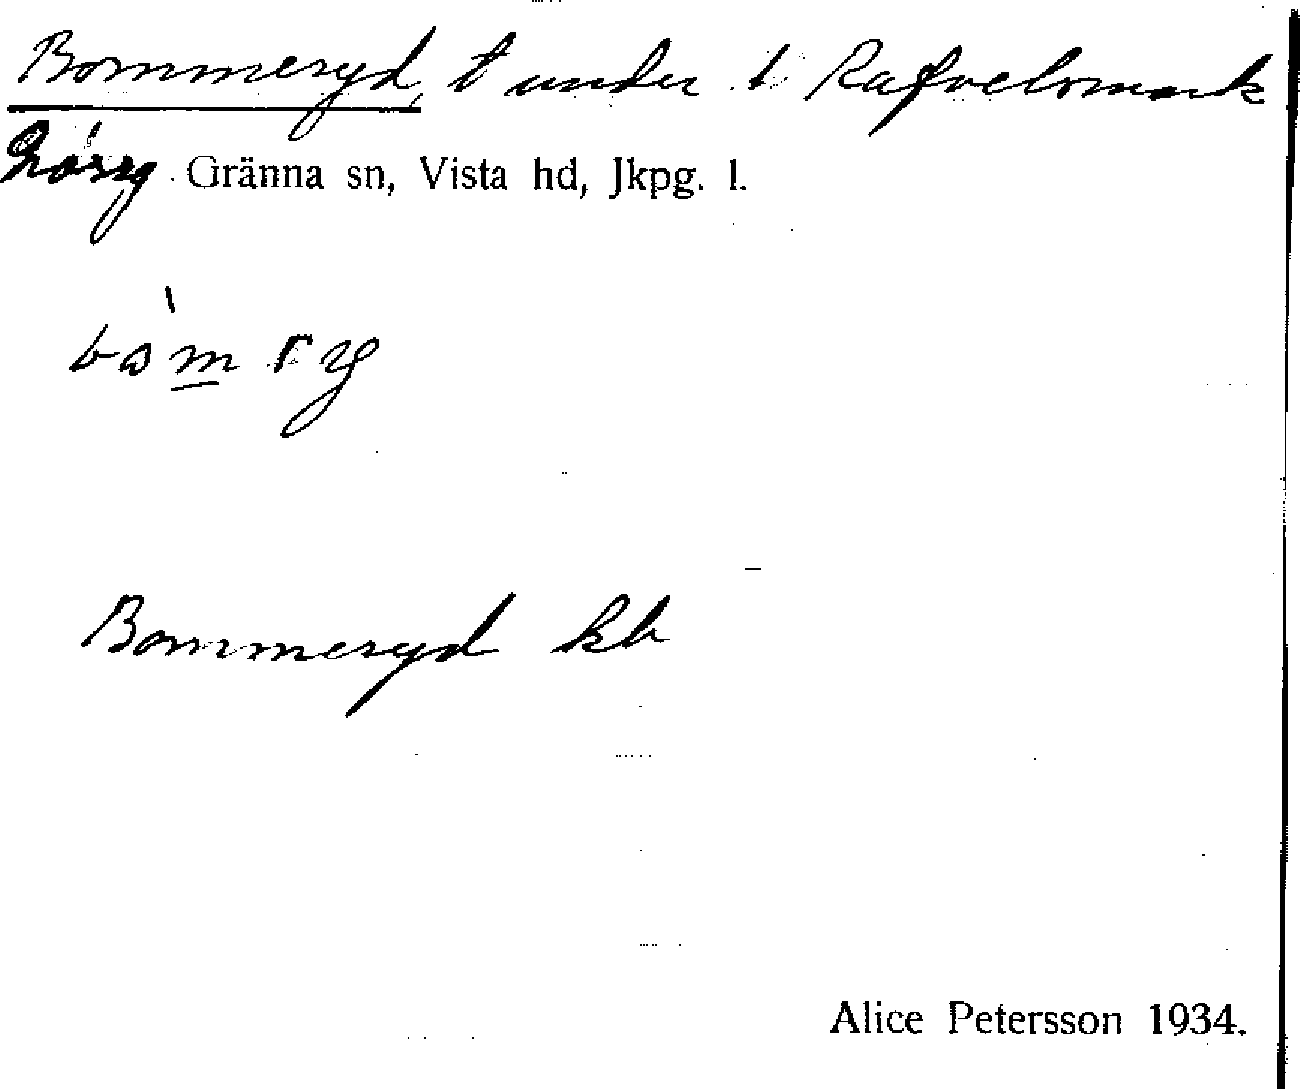 Bommeryd, t under t Rafvelsmark
Gränna sn, Vista hd, Jkpg. l.
bòm ry
Bommeryd kb
Alice Petersson 1934.